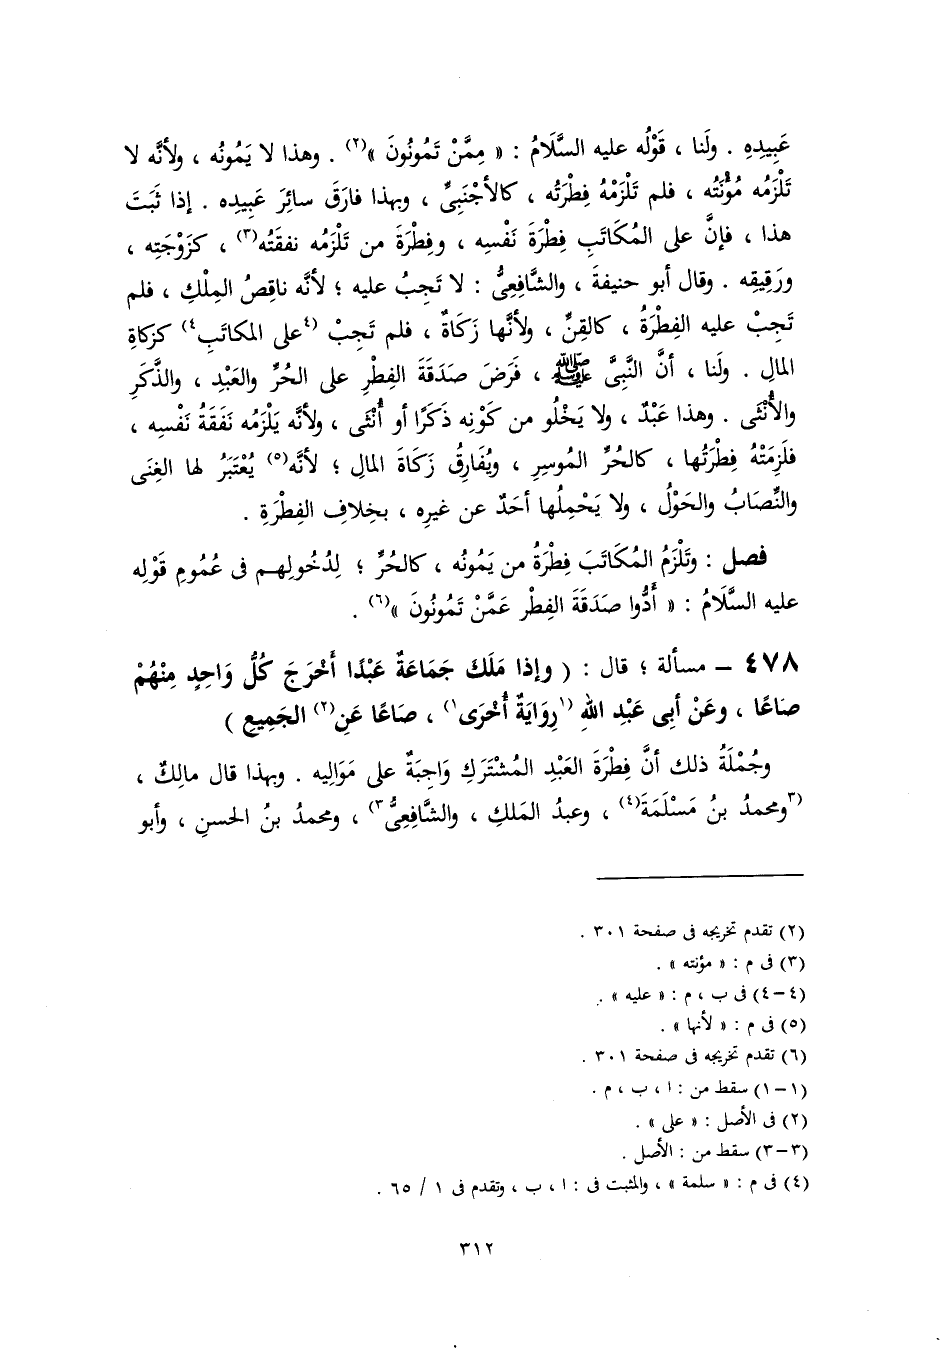 عَبِيدِهِ . ولَنا ، قَوْلُه عليه السَّلَامُ : « مِمَّنْ تَمُونُونَ »(٢) . وهذا لا يَمُونُه ، ولأنَّه لا
تَلْزَمُه مُؤْنَتُه ، فلم تَلْزَمْهُ فِطْرَتُه ، كالأجْنَبِىِّ ، وبهذا فارَقَ سائِرَ عَبِيدِه . إذا ثَبَتَ
هذا ، فإنَّ على المُكَاتَبِ فِطْرَةَ نَفْسِه ، وفِطْرَةَ من تَلْزَمُه نفقَتُه(٣) ، كزَوْجَتِه ،
ورَقِيقِه . وقال أبو حنيفةَ ، والشَّافِعِىُّ : لا تَجِبُ عليه ؛ لأنَّه ناقِصُ المِلْكِ ، فلم
تَجِبْ عليه الفِطْرَةُ ، كالقِنِّ ، ولأنَّها زَكَاةٌ ، فلم تَجِبْ (٤على المكاتَبِ٤) كزكاةِ
المالِ . ولَنا ، أنَّ النَّبِىَّ ﷺ ، فَرَضَ صَدَقَةَ الفِطْرِ على الحُرِّ والعَبْدِ ، والذَّكَرِ
والأُنْثَى . وهذا عَبْدٌ ، ولا يَخْلُو من كَوْنِه ذَكَرًا أو أُنْثَى ، ولأنَّه يَلْزَمُه نَفَقَةُ نَفْسِه ،
فلَزِمَتْهُ فِطْرَتُها ، كالحُرِّ المُوسِرِ ، ويُفَارِقُ زَكَاةَ المالِ ؛ لأنَّه(٥) يُعْتَبَرُ لها الغِنَى
والنِّصَابُ والحَوْلُ ، ولا يَحْمِلُها أحَدٌ عن غيرِه ، بخِلافِ الفِطْرَةِ .
فصل : وتَلْزَمُ المُكَاتَبَ فِطْرَةُ من يَمُونُه ، كالحُرِّ ؛ لِدُخُولِهم فى عُمُومِ قَوْلِه
عليه السَّلَامُ : « أَدُّوا صَدَقَةَ الفِطْرِ عَمَّنْ تَمُونُونَ »(٦) .
٤٧٨ – مسألة ؛ قال : ( وإذا مَلَكَ جَمَاعَةٌ عَبْدًا أَخْرَجَ كُلُّ وَاحِدٍ مِنْهُمْ
صَاعًا ، وعَنْ أبِى عَبْدِ اللهِ (١رِوَايَةٌ أُخْرَى١) ، صَاعًا عَنِ(٢) الجَمِيعِ )
وجُمْلَةُ ذلك أنَّ فِطْرَةَ العَبْدِ المُشْتَرَكِ وَاجِبَةٌ على مَوَالِيه . وبهذا قال مالِكٌ ،
(٣ومحمدُ بنُ مَسْلَمَةَ(٤) ، وعبدُ المَلكِ ، والشَّافِعِىُّ٣) ، ومحمدُ بنُ الحسنِ ، وأبو
(٢) تقدم تخريجه فى صفحة ٣٠١ .
(٣) فى م : « مؤنته » .
(٤–٤) فى ب ، م : « عليه » .
(٥) فى م : « لأنها » .
(٦) تقدم تخريجه فى صفحة ٣٠١ .
(١–١) سقط من : ا ، ب ، م .
(٢) فى الأصل : « على » .
(٣–٣) سقط من : الأصل .
(٤) فى م : « سلمة » ، والمثبت فى : ا ، ب ، وتقدم فى ١ / ٦٥ .
٣١٢